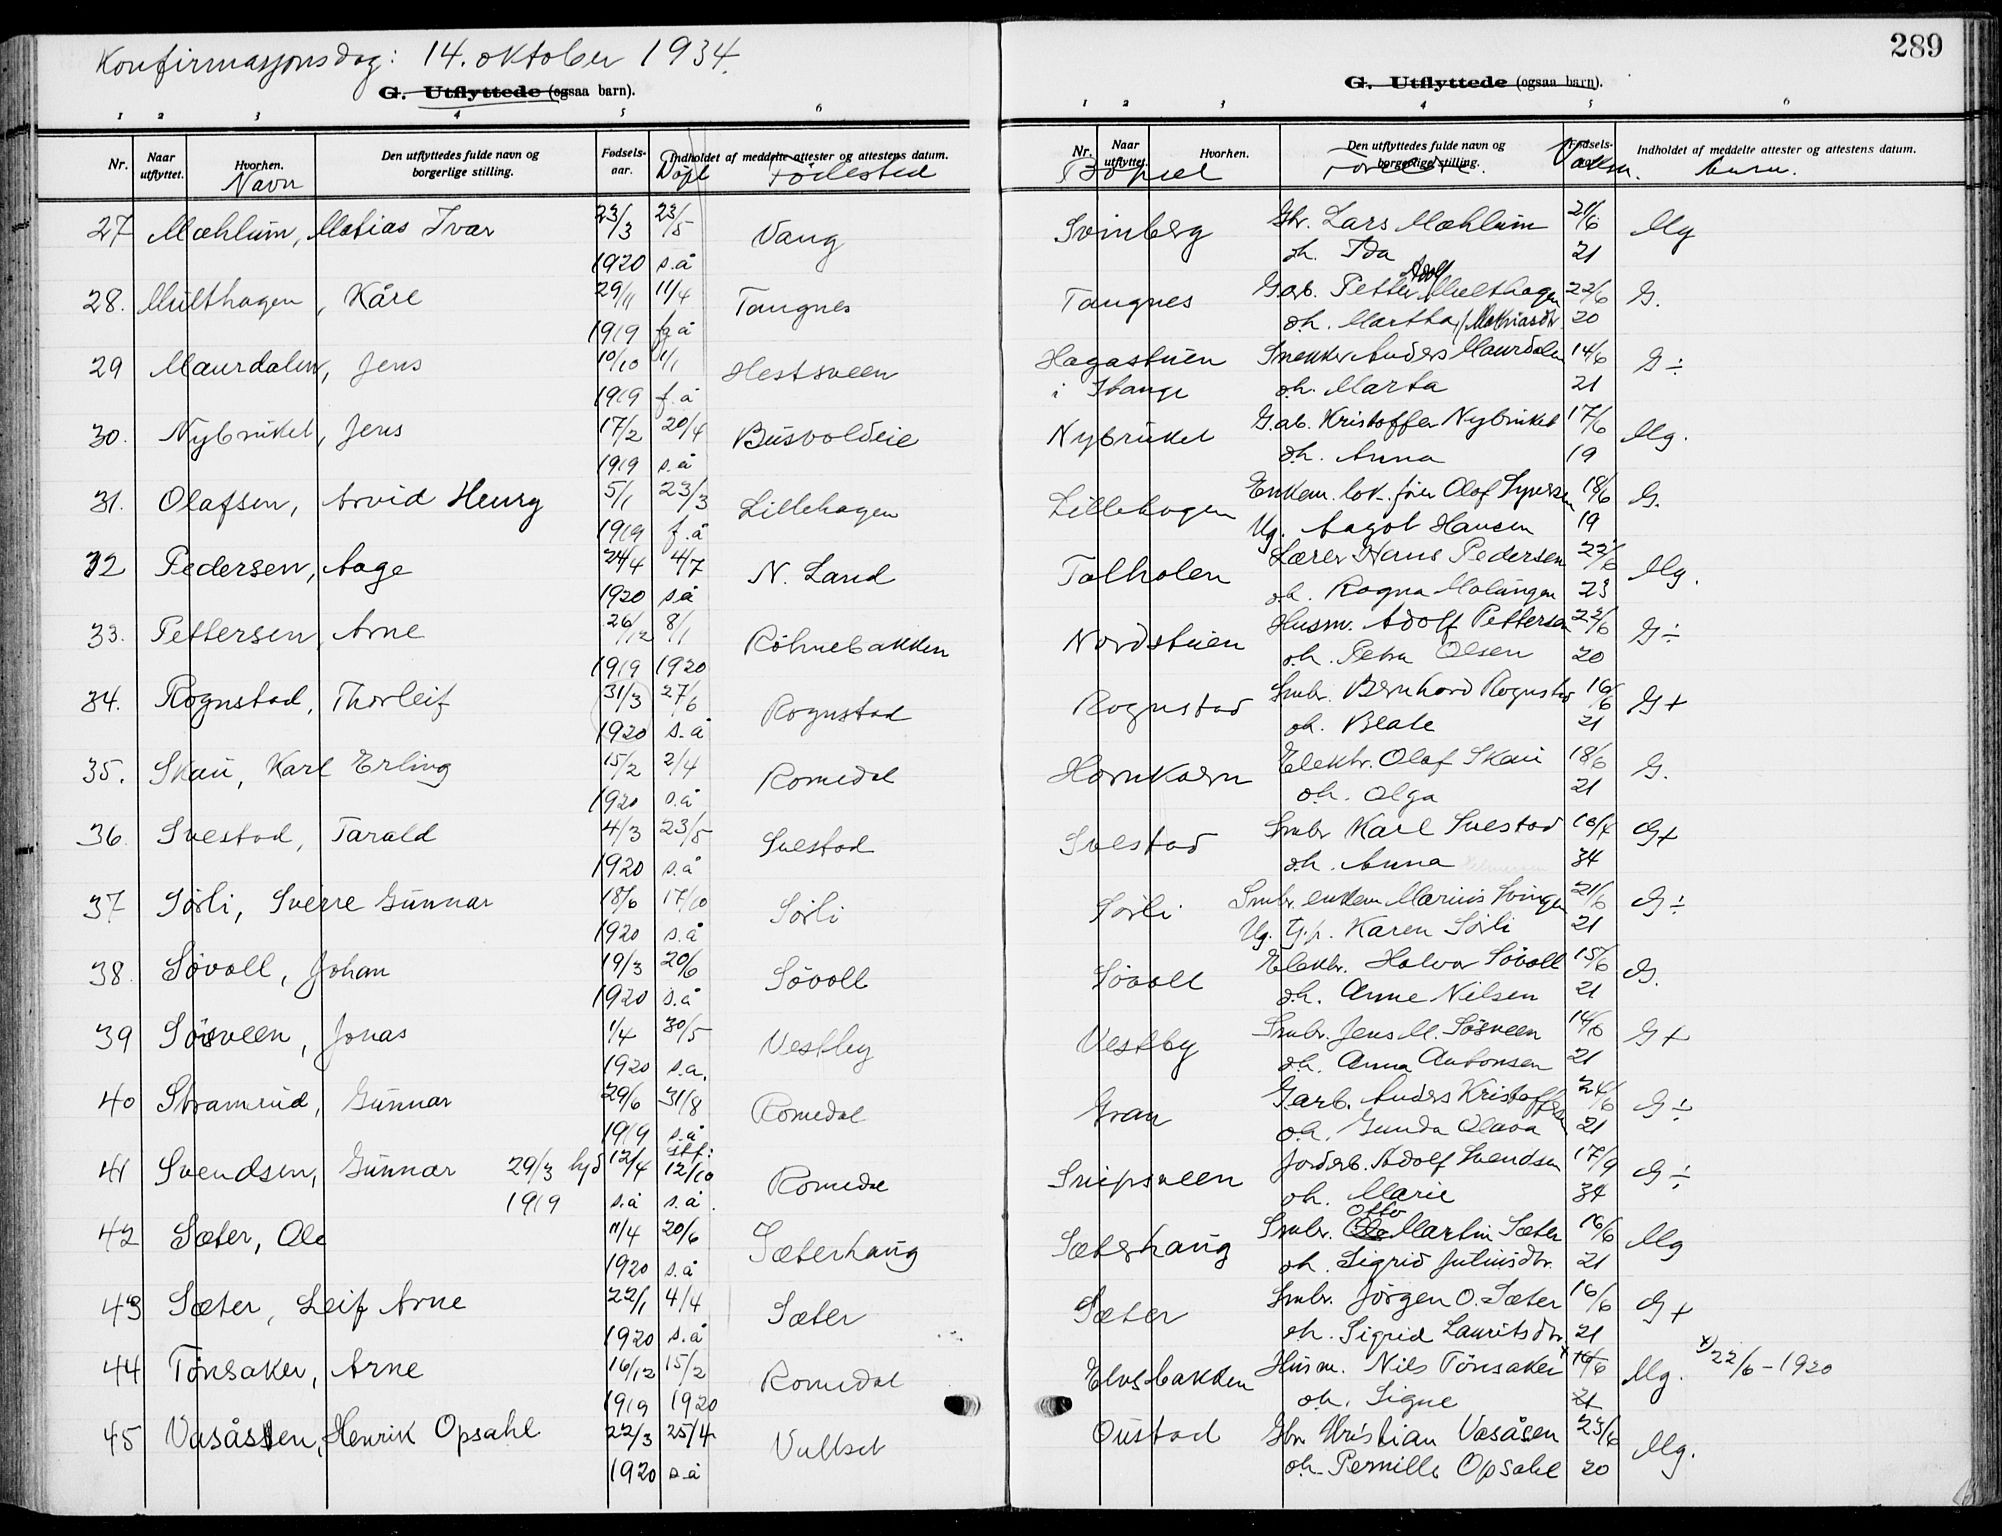 Konfirmasjonsdag: 14. oktober 1934.
289
G. Utflyttede (ogsaa barn).
G. Utflyttede (ogsaa barn).
1 2 3 4 5 6
1 2 3 4 5 6
Nr. Naar utflyttet. Hvorhen. Den utflyttedes fulde navn og borgerlige stilling. Fødsels-aar. Indholdet af meddelte attester og attestens datum.
Navn Döpt Födested
Nr. Naar utflyttet. Hvorhen. Den utflyttedes fulde navn og borgerlige stilling. Fødsels-aar. Indholdet af meddelte attester og attestens datum.
Bopæl Foreldre. Vaksin. Anm.
27 Mæhlum, Matias Ivar 23/3 23/5 Vang Svinberg Gbr. Lars Mæhlum 21/6 Mg
1920 s.å oh. Ida 21
28. Multhagen, Kåre 29/11 11/4 Tangnes Tangnes Garb. Petter Adolf Multhagen 22/6 G.
1919 fg å oh. Martha Mathiasdtr 20
29 Maurdalen, Jens 10/10 1/1 Hestsveen Hagastuen Snekker Anders Maurdalen 14/6 G ÷
1919 f.å i Stange oh. Marta 21
30. Nybruket, Jens 17/2 20/4 Busvoldeie Nybruket G.ab. Kristoffer Nybruket 17/6 Mg.
1919 s.å oh. Anna 19
31. Olafsen, Arvid Henry 5/1 23/3 Lillehagen Lillehagen Enkem. lok. Olaf 18/6 G.
1919 f.å Ug. Aagot Hansen 19
32 Pedersen, Aage 24/4 4/7 N. Land Tolholen Lærer Hans Pedersen 22/6 Mg.
1920 s.å oh. Ragna 23
33. Pettersen, Arne 26/12 8/1 Röhnebakken Nordstuen Husm. Adolf Pettersen 22/6 G ÷
1919 1920 oh. Petra Olsen 20
34. Rognstad, Thorleif 31/3 27/6 Rognstad Rognstad Smbr. Bernhard Rognstad 16/6 G +
1920 s.å oh. Beate 21
35. Skau, Karl Erling 15/2 2/4 Romedal Hornkærn Elektr. Olaf Skau 18/6 G.
1920 s.å oh. Olga 21
36. Svestad, Tarald 4/3 23/5 Svestad Svestad Smbr Karl Svestad 16/4 G+
1920 s.å oh. Anna 34
37. Sörli, Sverre Gunnar 18/6 17/10 Sörli Sörli Smbr. enkem Marius Svingen 21/6 G ÷
1920 s.å Ug. Karen Sörli 21
38. Sövoll, Johan 19/3 20/6 Sövoll Sövoll Elektr. Halvor Sövoll 15/6 G.
1920 s.å oh. Anne Nilsen 21
39 Sösveen, Jonas 1/4 30/5 Vestby Vestby Smbr. Jens M. Sösveen 14/6 G +
1920 s.a. oh. Anna Antonsen 21
40 Stramrud, Gunnar 29/6 31/8 Romedal Gran Garb. Anders Kristoffersen 24/6 G ÷
1919 s.å oh. Gunda Olava 21
41 Svendsen, Gunnar 29/3 hjd 12/4 stf: 12/10 Romedal Snipsveen Jorderb. Adolf Svendsen 17/9 G ÷
1919 s.å s.å. oh. Marie 34
42 Sæter, Ole 11/4 20/6 Sæterhaug Sæterhaug Smbr. Otto Martin Sæter 16/6 Mg
1920 s.å oh. Sigrid Juliusdtr. 21
43 Sæter, Leif Arne 22/1 4/4 Sæter Sæter Smbr. Jörgen O. Sæter 16/6 G +
1920 s.å oh. Sigrid Lauritsdtr. 21
44 Tönsaker, Arne 16/12 15/2 Romedal Elvsbakken Husm. Nils Tönsaker x 16/6 Mg. x) 22/6-1920
1919 1920 oh. Signe 21
45 Vasåsen, Henrik Opsahl 22/3 25/4 Vullset Oustad Gbr Kristian Vasåsen 23/6 Mg.
1920 s.å oh. Pernille Opsahl 20